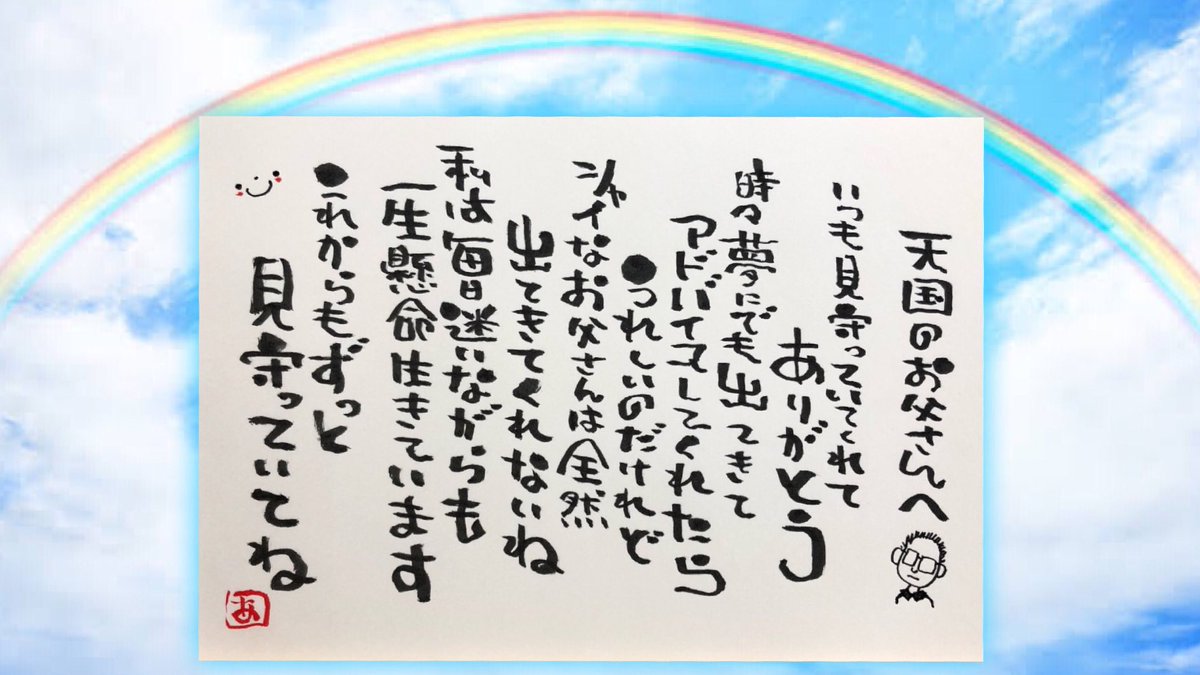 天国のお父さんへ
いつも見守っていてくれて
ありがとう
時々夢にでも出てきて
アドバイスしてくれたら
うれしいのだけれど
シャイなお父さんは全然
出てきてくれないね
私は毎日迷いながらも
一生懸命生きています
これからもずっと
見守っていてね
あ